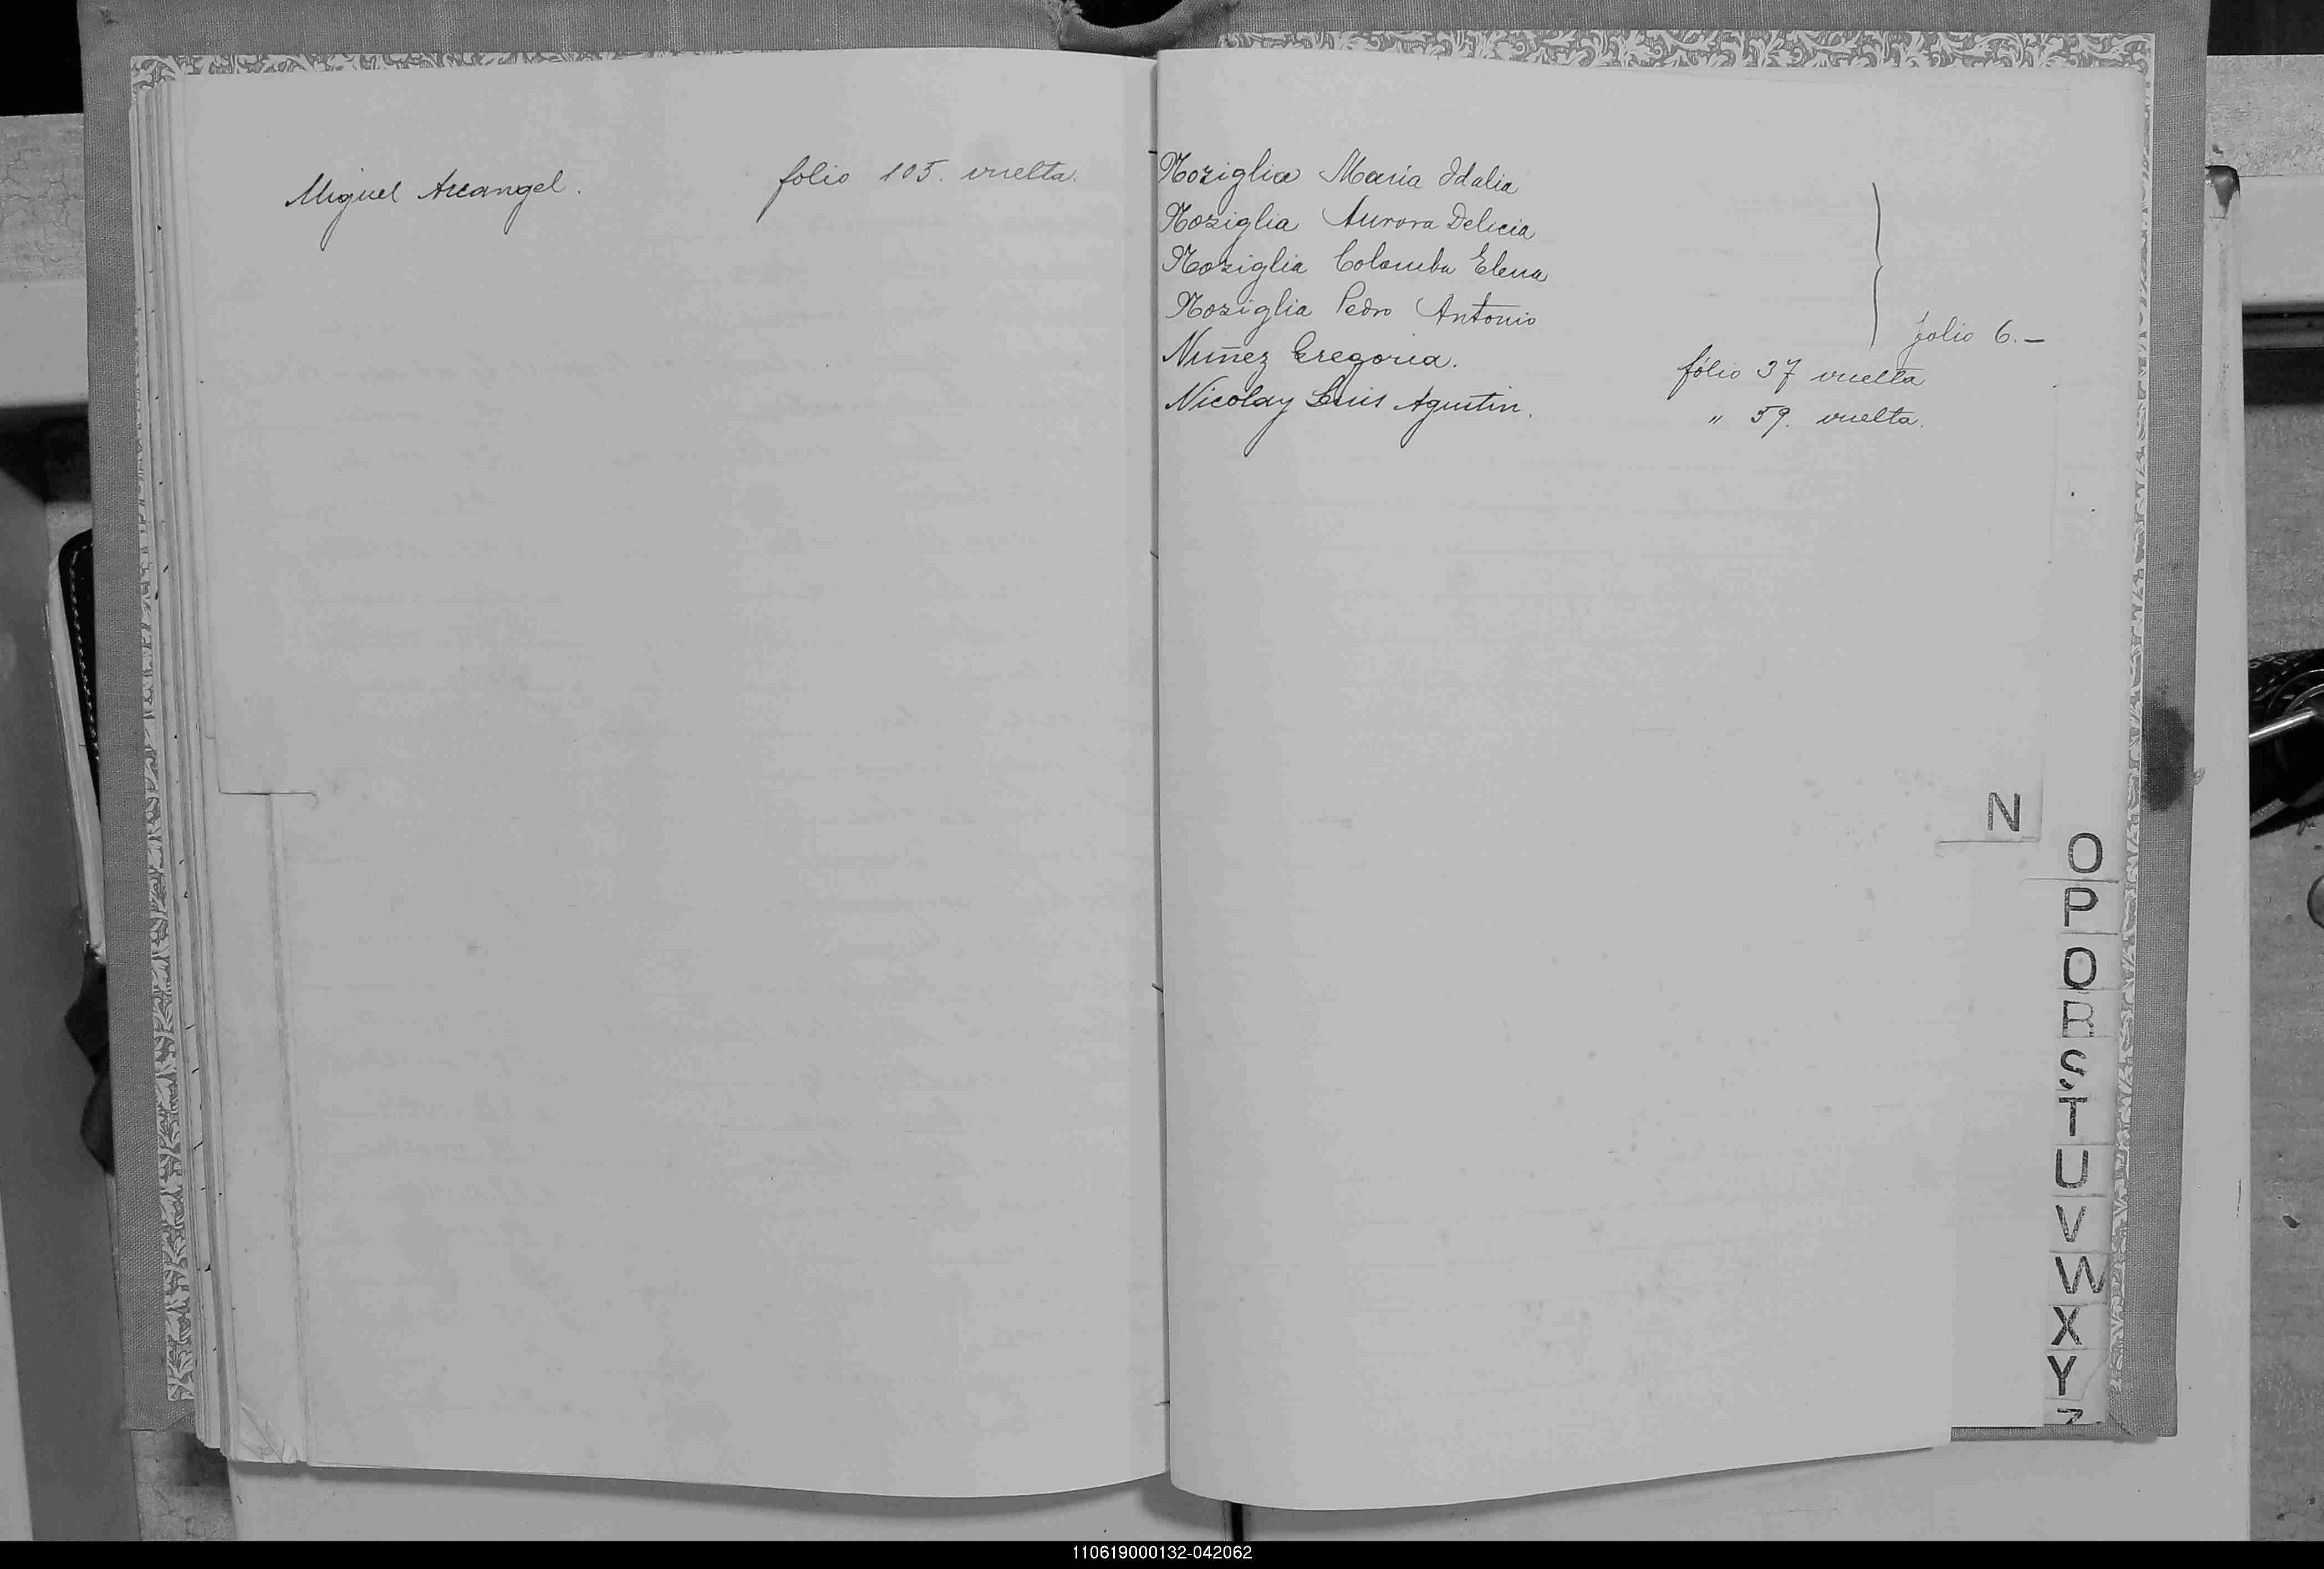 Miguel Arcangel. folio 105. vuelta.
Noziglia Maria Idalia
Noziglia Aurora Delicia
Noziglia Colomba Elena
Noziglia Pedro Antonio
folio 6.—
Nuñez Gregoria. folio 37 vuelta
Nicolay Luis Agustin. " 59. vuelta.
N
O
P
Q
R
S
T
U
V
W
X
Y
Z
110619000132-042062